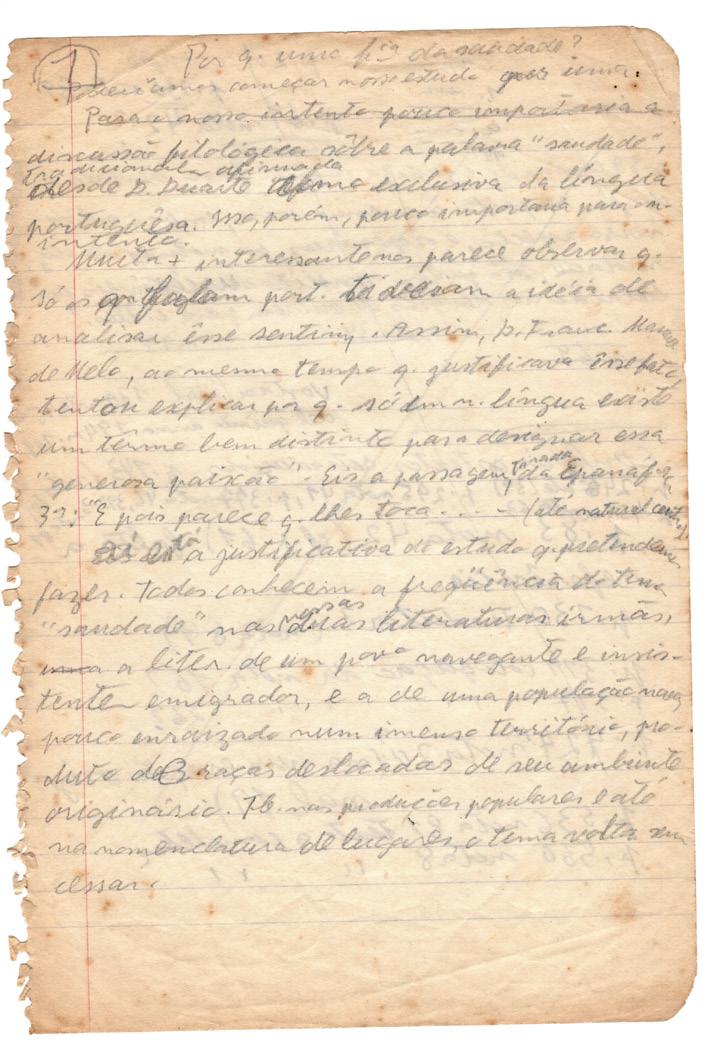 1
Por q. uma fia da saudade?
Poderíamos começar nosso estudo por uma
Para o nosso intento pouco importaria a
discussão filológica sôbre a palavra "saudade",
tradicional afirmada
desde D. Duarte como exclusiva da língua
portuguêsa. Isso, porém, pouco importaria para o n-
intento.
Muito + interessante nos parece observar q.
só os q falam port. tiveram a idéia de
analisar êsse sentim. Assim, D. Franc. Manuel
de Melo, ao mesmo tempo q. justificava êsse fato,
tentou explicar por q. só em n. língua existe
um têrmo bem distinto para designar essa
"generosa paixão". Eis a passagem, tirada da Epanáfora
3ª: "E pois parece q. lhes toca. . . - (até natural
está a justificativa do estudo q. pretendemos
fazer. Todos conhecem a freqüência do tema
"saudade" nas nossas duas literaturas irmãs,
uma a liter. de um povo navegante e insis-
tente emigrador, e a de uma população nova,
pouco enraizada num imenso território, pro-
duto de 3 raças deslocadas de seu ambiente
originário. Tb. nas produções populares e até
na nomenclatura de lugares, o tema volta sem
cessar.